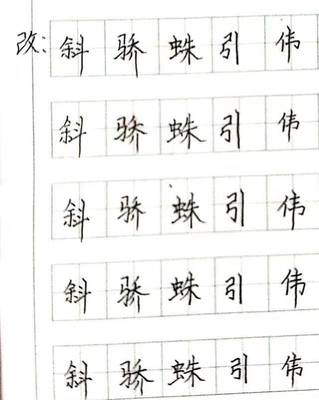 改:斜骄蛛引伟
斜骄蛛引伟
斜骄蛛引伟
斜骄蛛引伟
斜骄蛛引伟